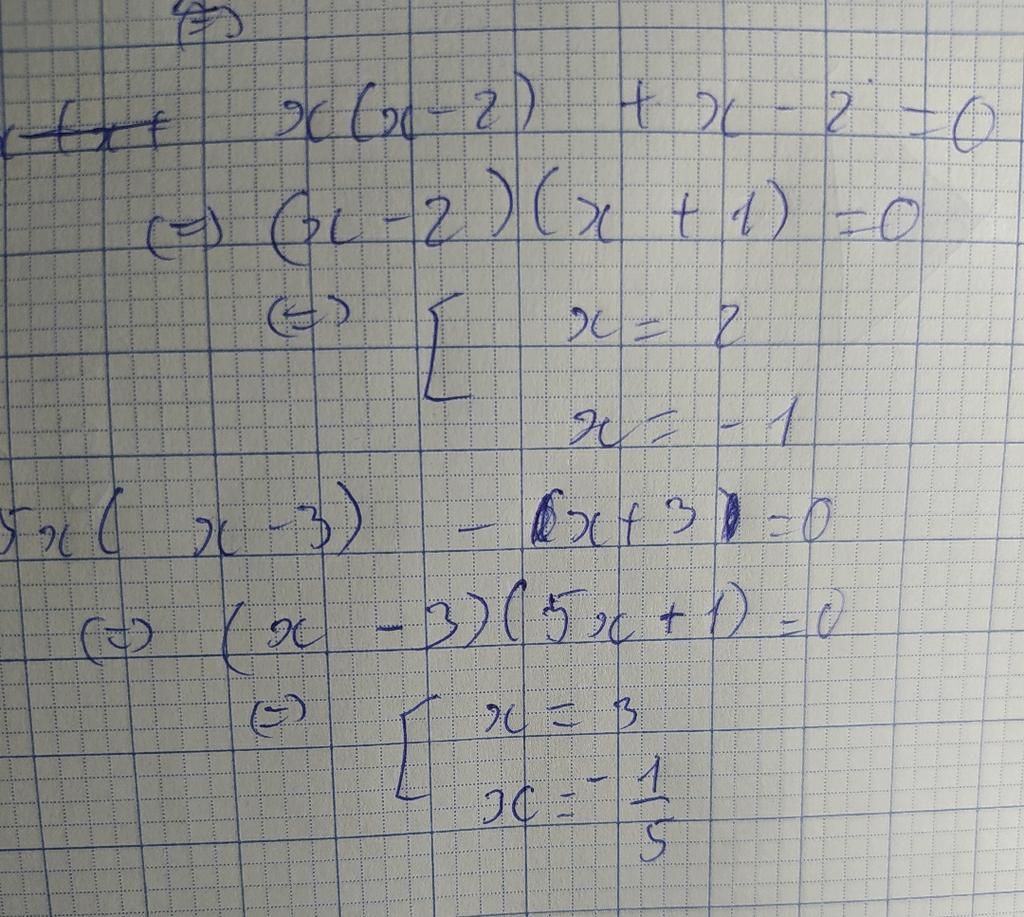 (=)
x(x-2) + x - 2 = 0
(=) (x-2)(x + 1) = 0
(=) [ x = 2
x = - 1
5x( x-3) - (x+3) = 0
(=) (x - 3)(5x+1) = 0
(=) [ x = 3
x = - 1/5